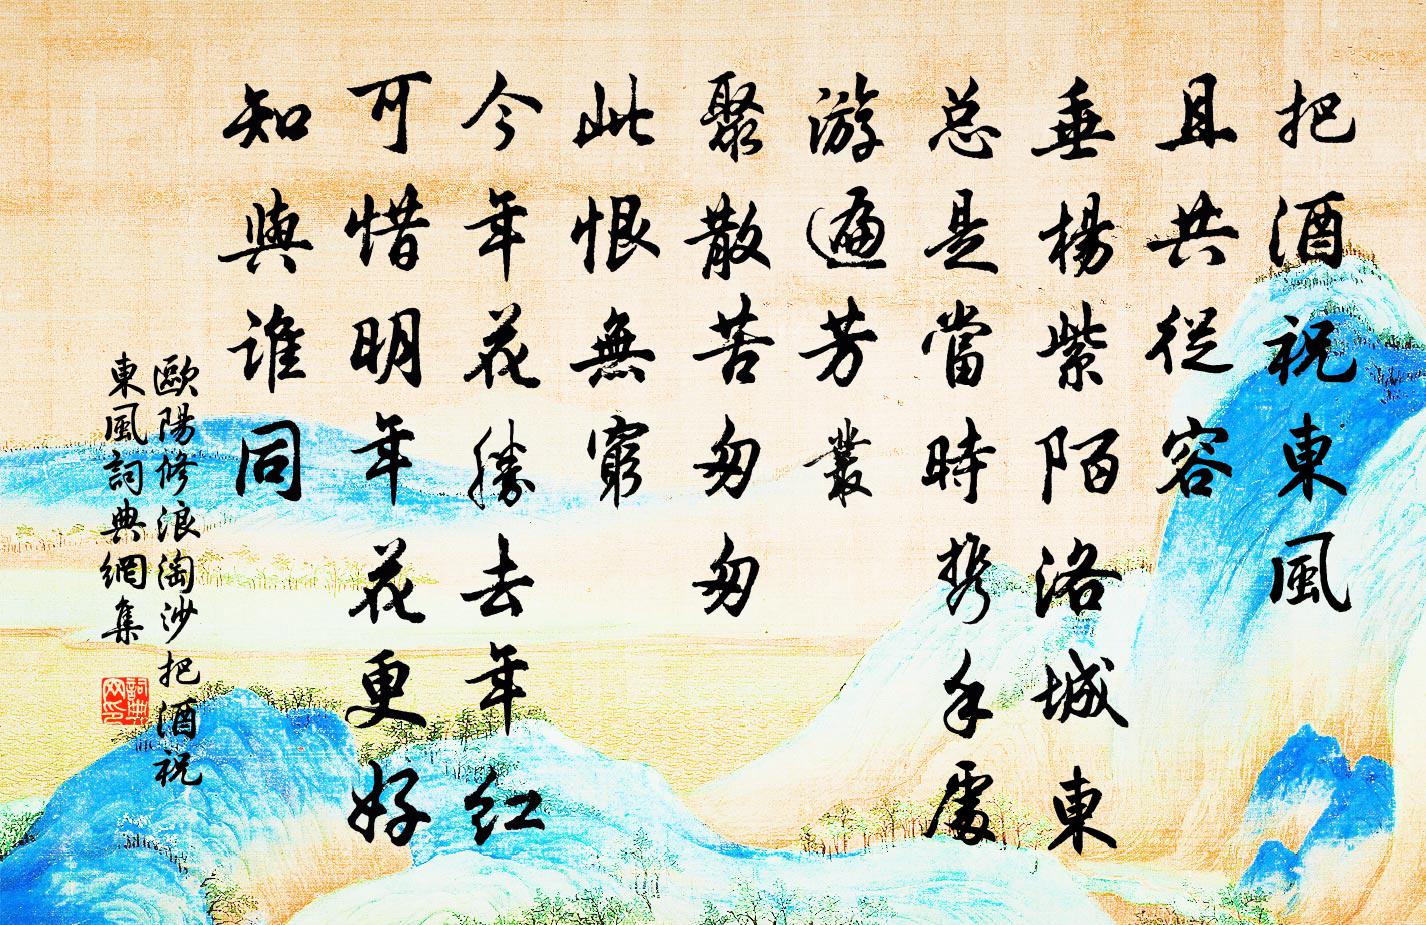 把酒祝東風
且共從容
垂楊紫陌洛城東
总是當時携手處
游遍芳叢
聚散苦匆匆
此恨無窮
今年花勝去年紅
可惜明年花更好
知與誰同
歐陽修浪淘沙把酒祝
東風詞典網集